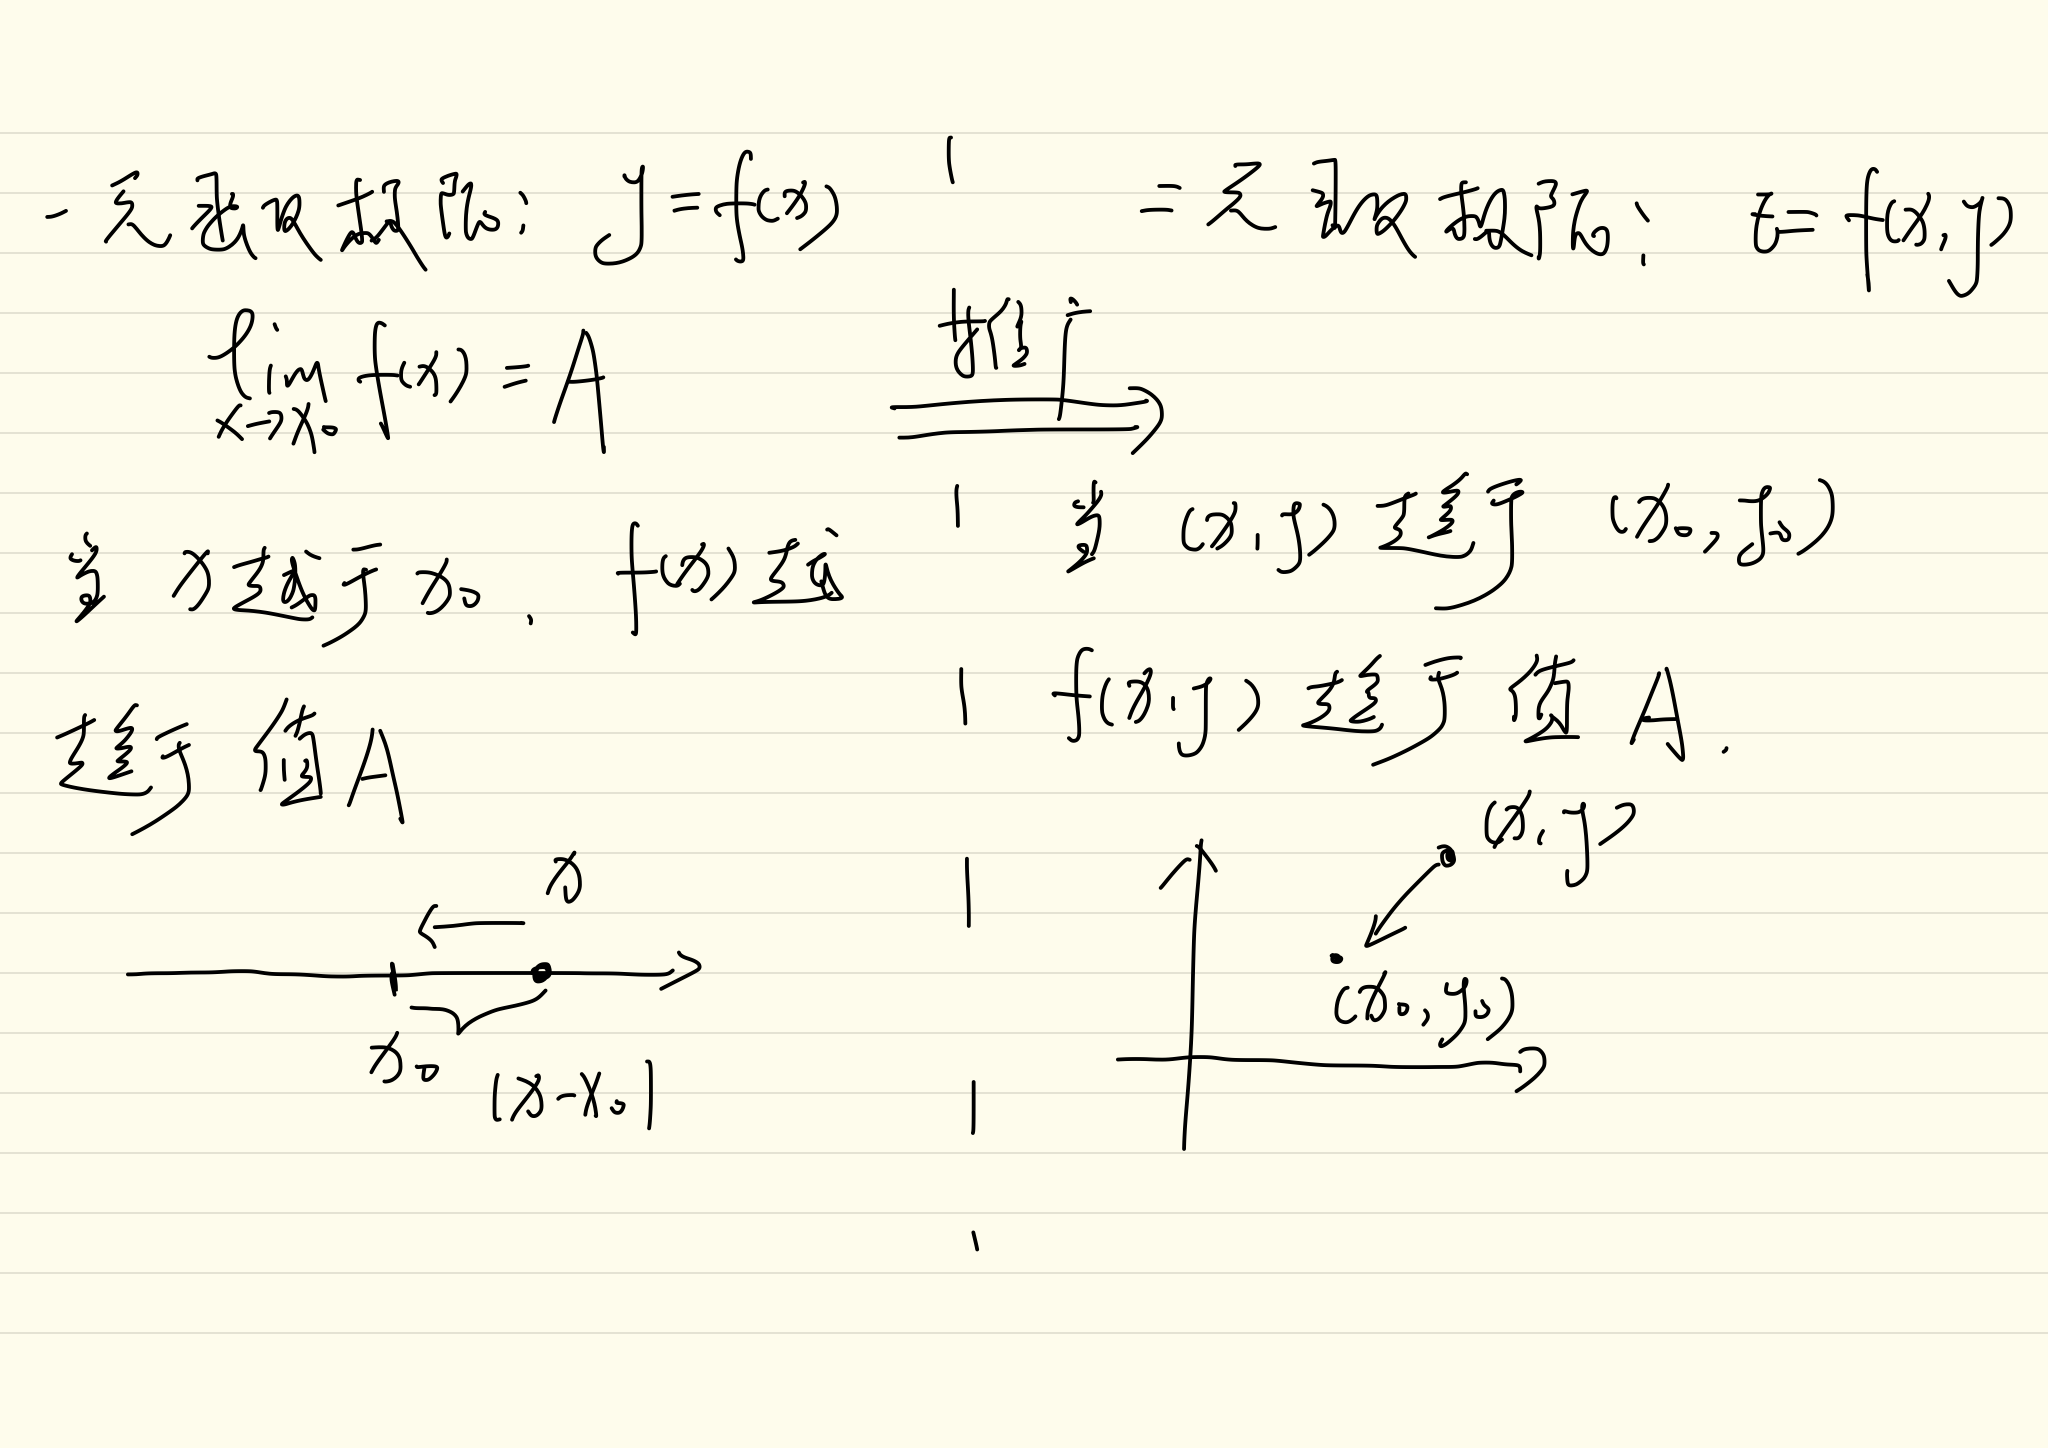 一元函数极限: y=f(x)
lim f(x) = A
x→x₀
当 x 趋于 x₀, f(x) 趋
趋于 值 A
x
x₀
|x-x₀|
推广
二元函数极限: z=f(x,y)
当 (x,y) 趋于 (x₀,y₀)
f(x,y) 趋于 值 A.
(x,y)
(x₀,y₀)